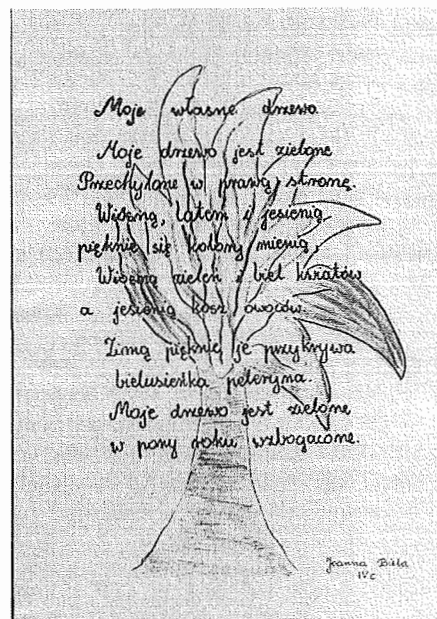 Moje własne drzewo
Moje drzewo jest zielone
Przechylone w prawą stronę.
Wiosną, latem i jesienią
pięknie się kolory mienią,
Wiosną zieleń i biel kwiatów
a jesienią kosz owoców.
Zimą pięknie je przykrywa
bielusieńka peleryna.
Moje drzewo jest zielone
w pory roku wzbogacone.
Joanna Biela
IVc